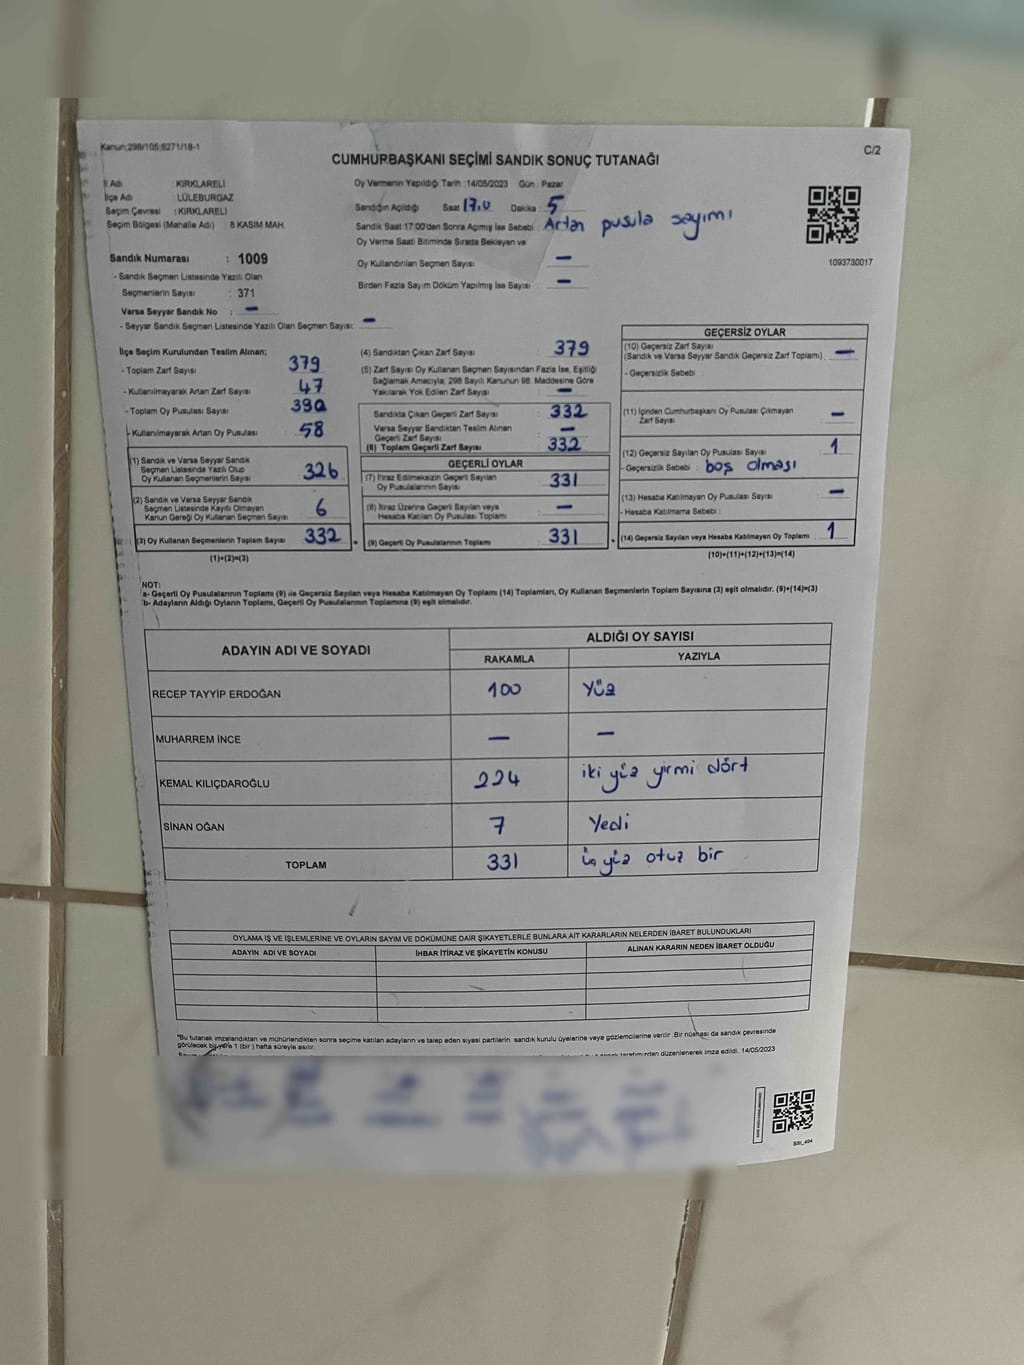 Kanun:298/105,6271/18-1
C/2
CUMHURBAŞKANI SEÇİMİ SANDIK SONUÇ TUTANAĞI
İl Adı : KIRKLARELİ
İlçe Adı : LÜLEBURGAZ
Seçim Çevresi : KIRKLARELİ
Seçim Bölgesi (Mahalle Adı) 8 KASIM MAH.
Oy Vermenin Yapıldığı Tarih : 14/05/2023 Gün : Pazar
Sandığın Açıldığı Saat 17.0 Dakika : 5
Sandık Saat 17:00'den Sonra Açılmış İse Sebebi : Artan pusula sayımı
Oy Verme Saati Bitiminde Sırada Bekleyen ve
Oy Kullandırılan Seçmen Sayısı —
Birden Fazla Sayım Döküm Yapılmış İse Sayısı —
1093730017
Sandık Numarası : 1009
- Sandık Seçmen Listesinde Yazılı Olan
Seçmenlerin Sayısı : 371
Varsa Seyyar Sandık No : —
- Seyyar Sandık Seçmen Listesinde Yazılı Olan Seçmen Sayısı: —
İlçe Seçim Kurulundan Teslim Alınan;
- Toplam Zarf Sayısı 379
- Kullanılmayarak Artan Zarf Sayısı 47
- Toplam Oy Pusulası Sayısı 390
- Kullanılmayarak Artan Oy Pusulası 58
(1) Sandık ve Varsa Seyyar Sandık
Seçmen Listesinde Yazılı Olup
Oy Kullanan Seçmenlerin Sayısı 326
(2) Sandık ve Varsa Seyyar Sandık
Seçmen Listesinde Kayıtlı Olmayan
Kanun Gereği Oy Kullanan Seçmen Sayısı 6
(3) Oy Kullanan Seçmenlerin Toplam Sayısı 332
(1)+(2)=(3)
(4) Sandıktan Çıkan Zarf Sayısı 379
(5) Zarf Sayısı Oy Kullanan Seçmen Sayısından Fazla İse, Eşitliği
Sağlamak Amacıyla; 298 Sayılı Kanunun 98. Maddesine Göre
Yakılarak Yok Edilen Zarf Sayısı —
Sandıkta Çıkan Geçerli Zarf Sayısı 332
Varsa Seyyar Sandıktan Teslim Alınan
Geçerli Zarf Sayısı —
(6) Toplam Geçerli Zarf Sayısı 332
GEÇERLİ OYLAR
(7) İtiraz Edilmeksizin Geçerli Sayılan
Oy Pusulalarının Sayısı 331
(8) İtiraz Üzerine Geçerli Sayılan veya
Hesaba Katılan Oy Pusulası Toplamı —
(9) Geçerli Oy Pusulalarının Toplamı 331
GEÇERSİZ OYLAR
(10) Geçersiz Zarf Sayısı
(Sandık ve Varsa Seyyar Sandık Geçersiz Zarf Toplamı) : —
- Geçersizlik Sebebi :
(11) İçinden Cumhurbaşkanı Oy Pusulası Çıkmayan
Zarf Sayısı —
(12) Geçersiz Sayılan Oy Pusulası Sayısı 1
- Geçersizlik Sebebi : boş olması
(13) Hesaba Katılmayan Oy Pusulası Sayısı —
- Hesaba Katılmama Sebebi :
(14) Geçersiz Sayılan veya Hesaba Katılmayan Oy Toplamı 1
(10)+(11)+(12)+(13)=(14)
NOT:
a- Geçerli Oy Pusulalarının Toplamı (9) ile Geçersiz Sayılan veya Hesaba Katılmayan Oy Toplamı (14) Toplamları, Oy Kullanan Seçmenlerin Toplam Sayısına (3) eşit olmalıdır. (9)+(14)=(3)
b- Adayların Aldığı Oyların Toplamı, Geçerli Oy Pusulalarının Toplamına (9) eşit olmalıdır.
ADAYIN ADI VE SOYADI
ALDIĞI OY SAYISI
RAKAMLA YAZIYLA
RECEP TAYYİP ERDOĞAN 100 yüz
MUHARREM İNCE — —
KEMAL KILIÇDAROĞLU 224 iki yüz yirmi dört
SİNAN OĞAN 7 Yedi
TOPLAM 331 üç yüz otuz bir
OYLAMA İŞ VE İŞLEMLERİNE VE OYLARIN SAYIM VE DÖKÜMÜNE DAİR ŞİKAYETLERLE BUNLARA AİT KARARLARIN NELERDEN İBARET BULUNDUKLARI
ADAYIN ADI VE SOYADI İHBAR İTİRAZ VE ŞİKAYETİN KONUSU ALINAN KARARIN NEDEN İBARET OLDUĞU
*Bu tutanak imzalandıktan ve mühürlendikten sonra seçime katılan adayların ve talep eden siyasi partilerin sandık kurulu üyelerine veya gözlemcilerine verilir. Bir nüshası da sandık çevresinde
görülecek bir yere 1 (bir) hafta süreyle asılır.
tarafımızdan düzenlenerek imza edildi. 14/05/2023